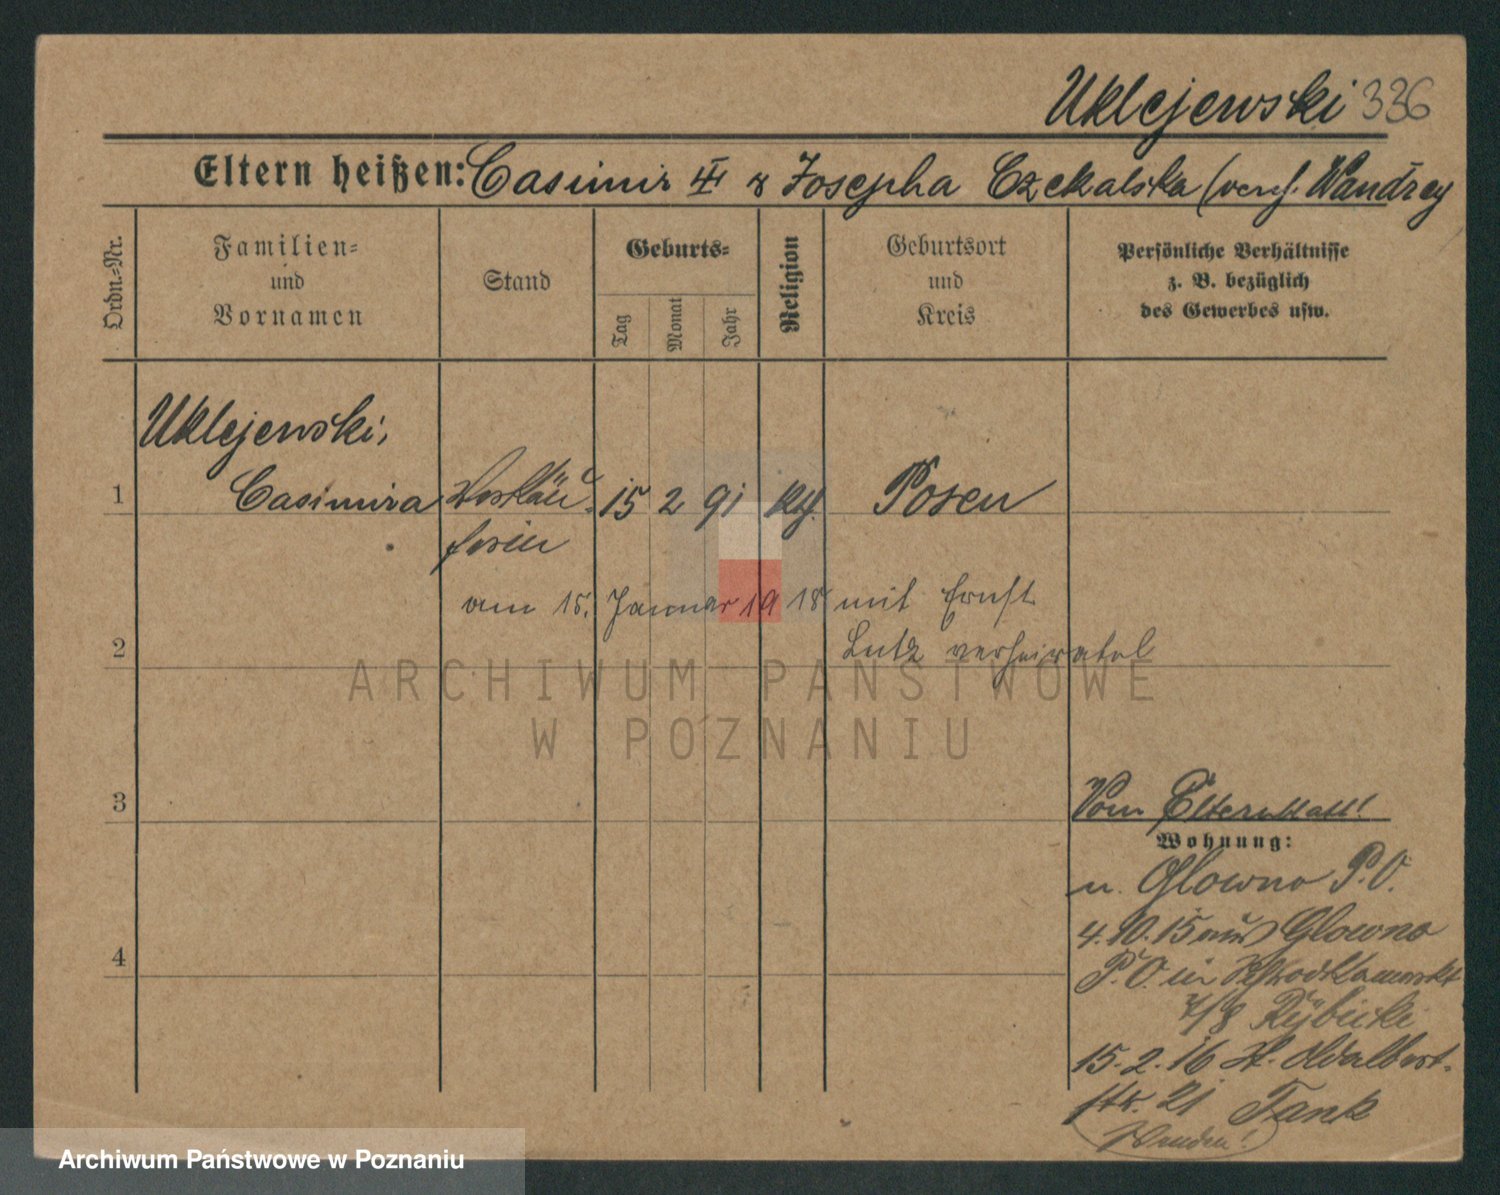 Uklejewski 336
Eltern heißen: Casimir III & Josepha Czekalska (verh. Wandrey
Ordn.-Nr.
Familien-
und
Vornamen
Stand
Geburts-
Tag
Monat
Jahr
Religion
Geburtsort
und
Kreis
Persönliche Verhältnisse
z. B. bezüglich
des Gewerbes usw.
Uklejewski,
1 Casimira Verkäu- 15 2 91 kth. Posen
ferin
am 15. Januar 1918 mit Ernst
Lutz verheiratet
2
ARCHIWUM PAŃSTWOWE
W POZNANIU
3
Vom Elternblatt!
Wohnung:
n. Glowno P.O.
4.10.15 aus Glowno
4
P.O. in
7/8 Rybicki
15.2.16 St. Adalbert-
str. 21 Tank
Wenden!
Archiwum Państwowe w Poznaniu